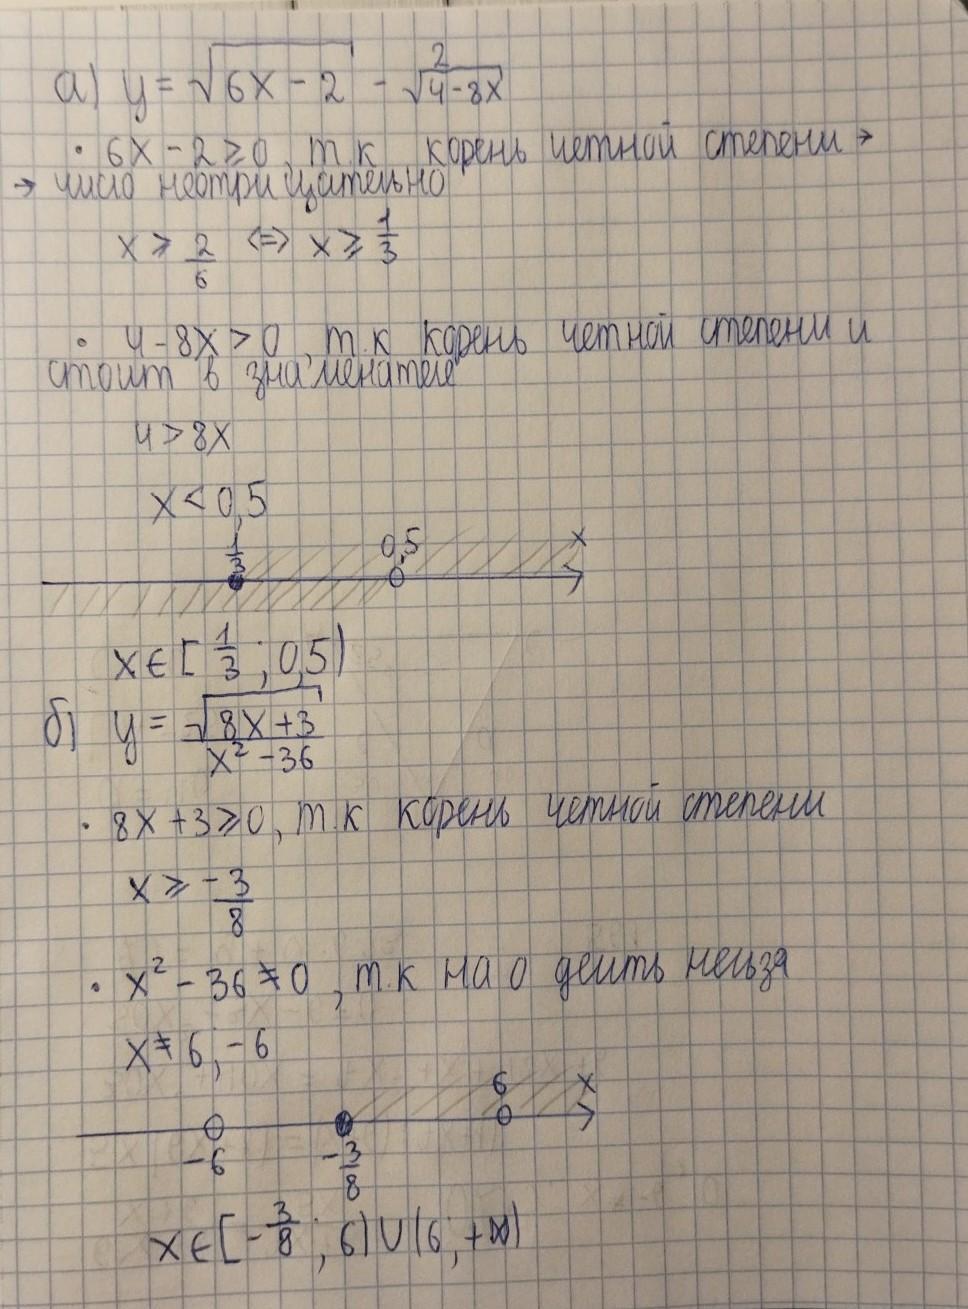 а) y = √(6x - 2) - 2/√(4-8x)
• 6x - 2 ≥ 0, т.к. корень четной степени →
→ число неотрицательно
x ≥ 2/6 <=> x ≥ 1/3
• 4 - 8x > 0, т.к корень четной степени и
стоит в знаменателе
4 > 8x
x < 0,5
1/3 0,5 x
x ∈ [1/3 ; 0,5)
б) y = √(8x+3)/(x² - 36)
• 8x + 3 ≥ 0, т.к корень четной степени
x ≥ -3/8
• x² - 36 ≠ 0, т.к на 0 делить нельзя
x ≠ 6, -6
6 x
-6 -3/8
x ∈ [-3/8 ; 6) ∪ (6 ; +∞)